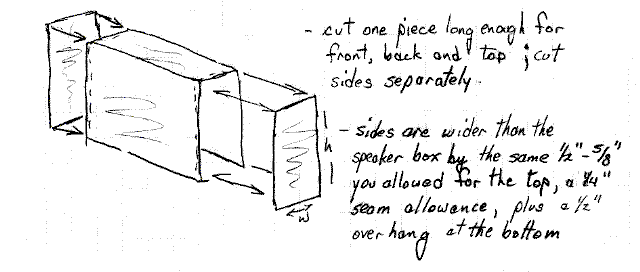 - cut one piece long enough for
front, back and top ; cut
sides separately.
- sides are wider than the
speaker box by the same 1/2"-5/8"
you allowed for the top, a 1/4"
seam allowance, plus a 1/2"
overhang at the bottom
h
w